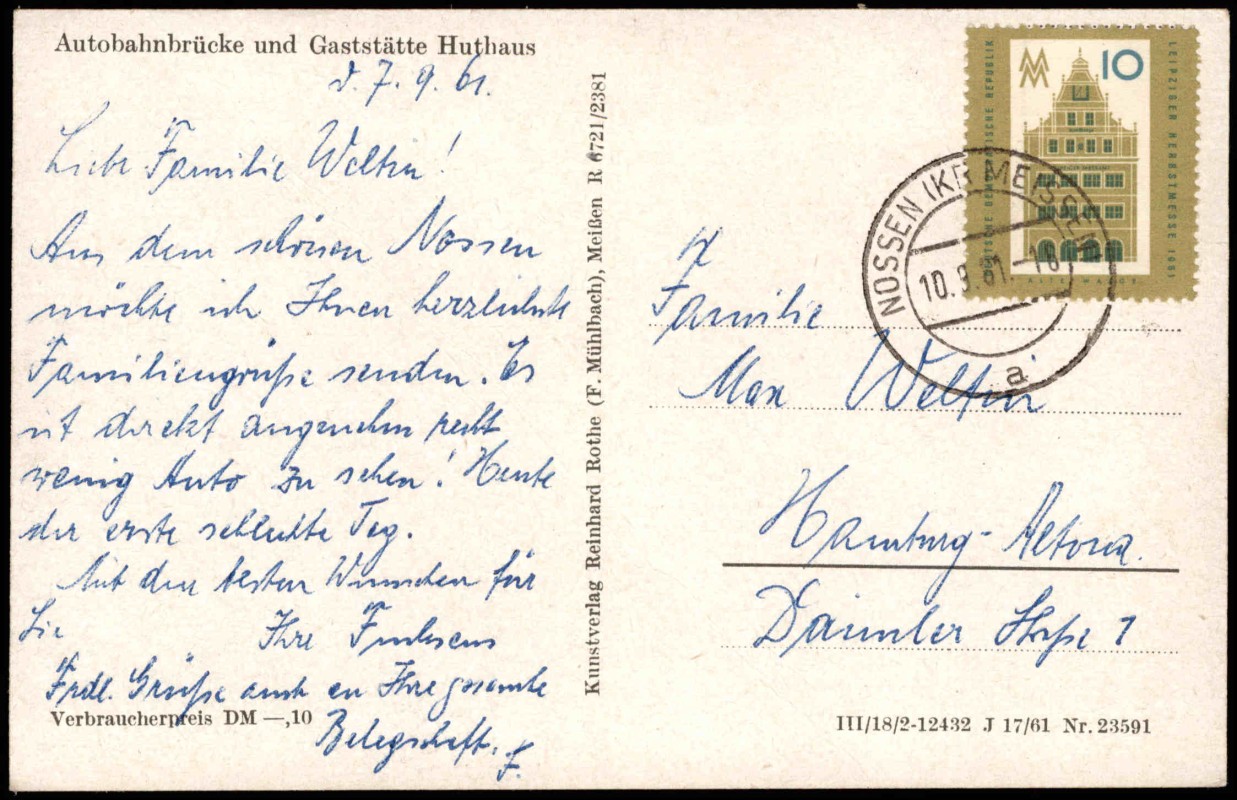 Autobahnbrücke und Gaststätte Huthaus
d. 7. 9. 61.
Liebe Familie Weltin!
Aus dem schönen Nossen
möchte ich Ihnen herzlichste
Familiengrüße senden. Es
ist direkt angenehm recht
wenig Auto zu sehen! Heute
der erste schlechte Tag.
Mit den besten Wünschen für
Sie Ihre
Frdl. Grüße auch an Ihre gesamte
Belegschaft.
Verbraucherpreis DM —,10
Kunstverlag Reinhard Rothe (F. Mühlbach), Meißen R 6721/2381
MM 10
DEUTSCHE DEMOKRATISCHE REPUBLIK
LEIPZIGER HERBSTMESSE 1961
ALTE WAAGE
NOSSEN (KR MEISSEN)
10.9.61.-18
a
Familie
Max Weltin
Hamburg-Altona.
Daimler Straße 1
III/18/2-12432 J 17/61 Nr. 23591